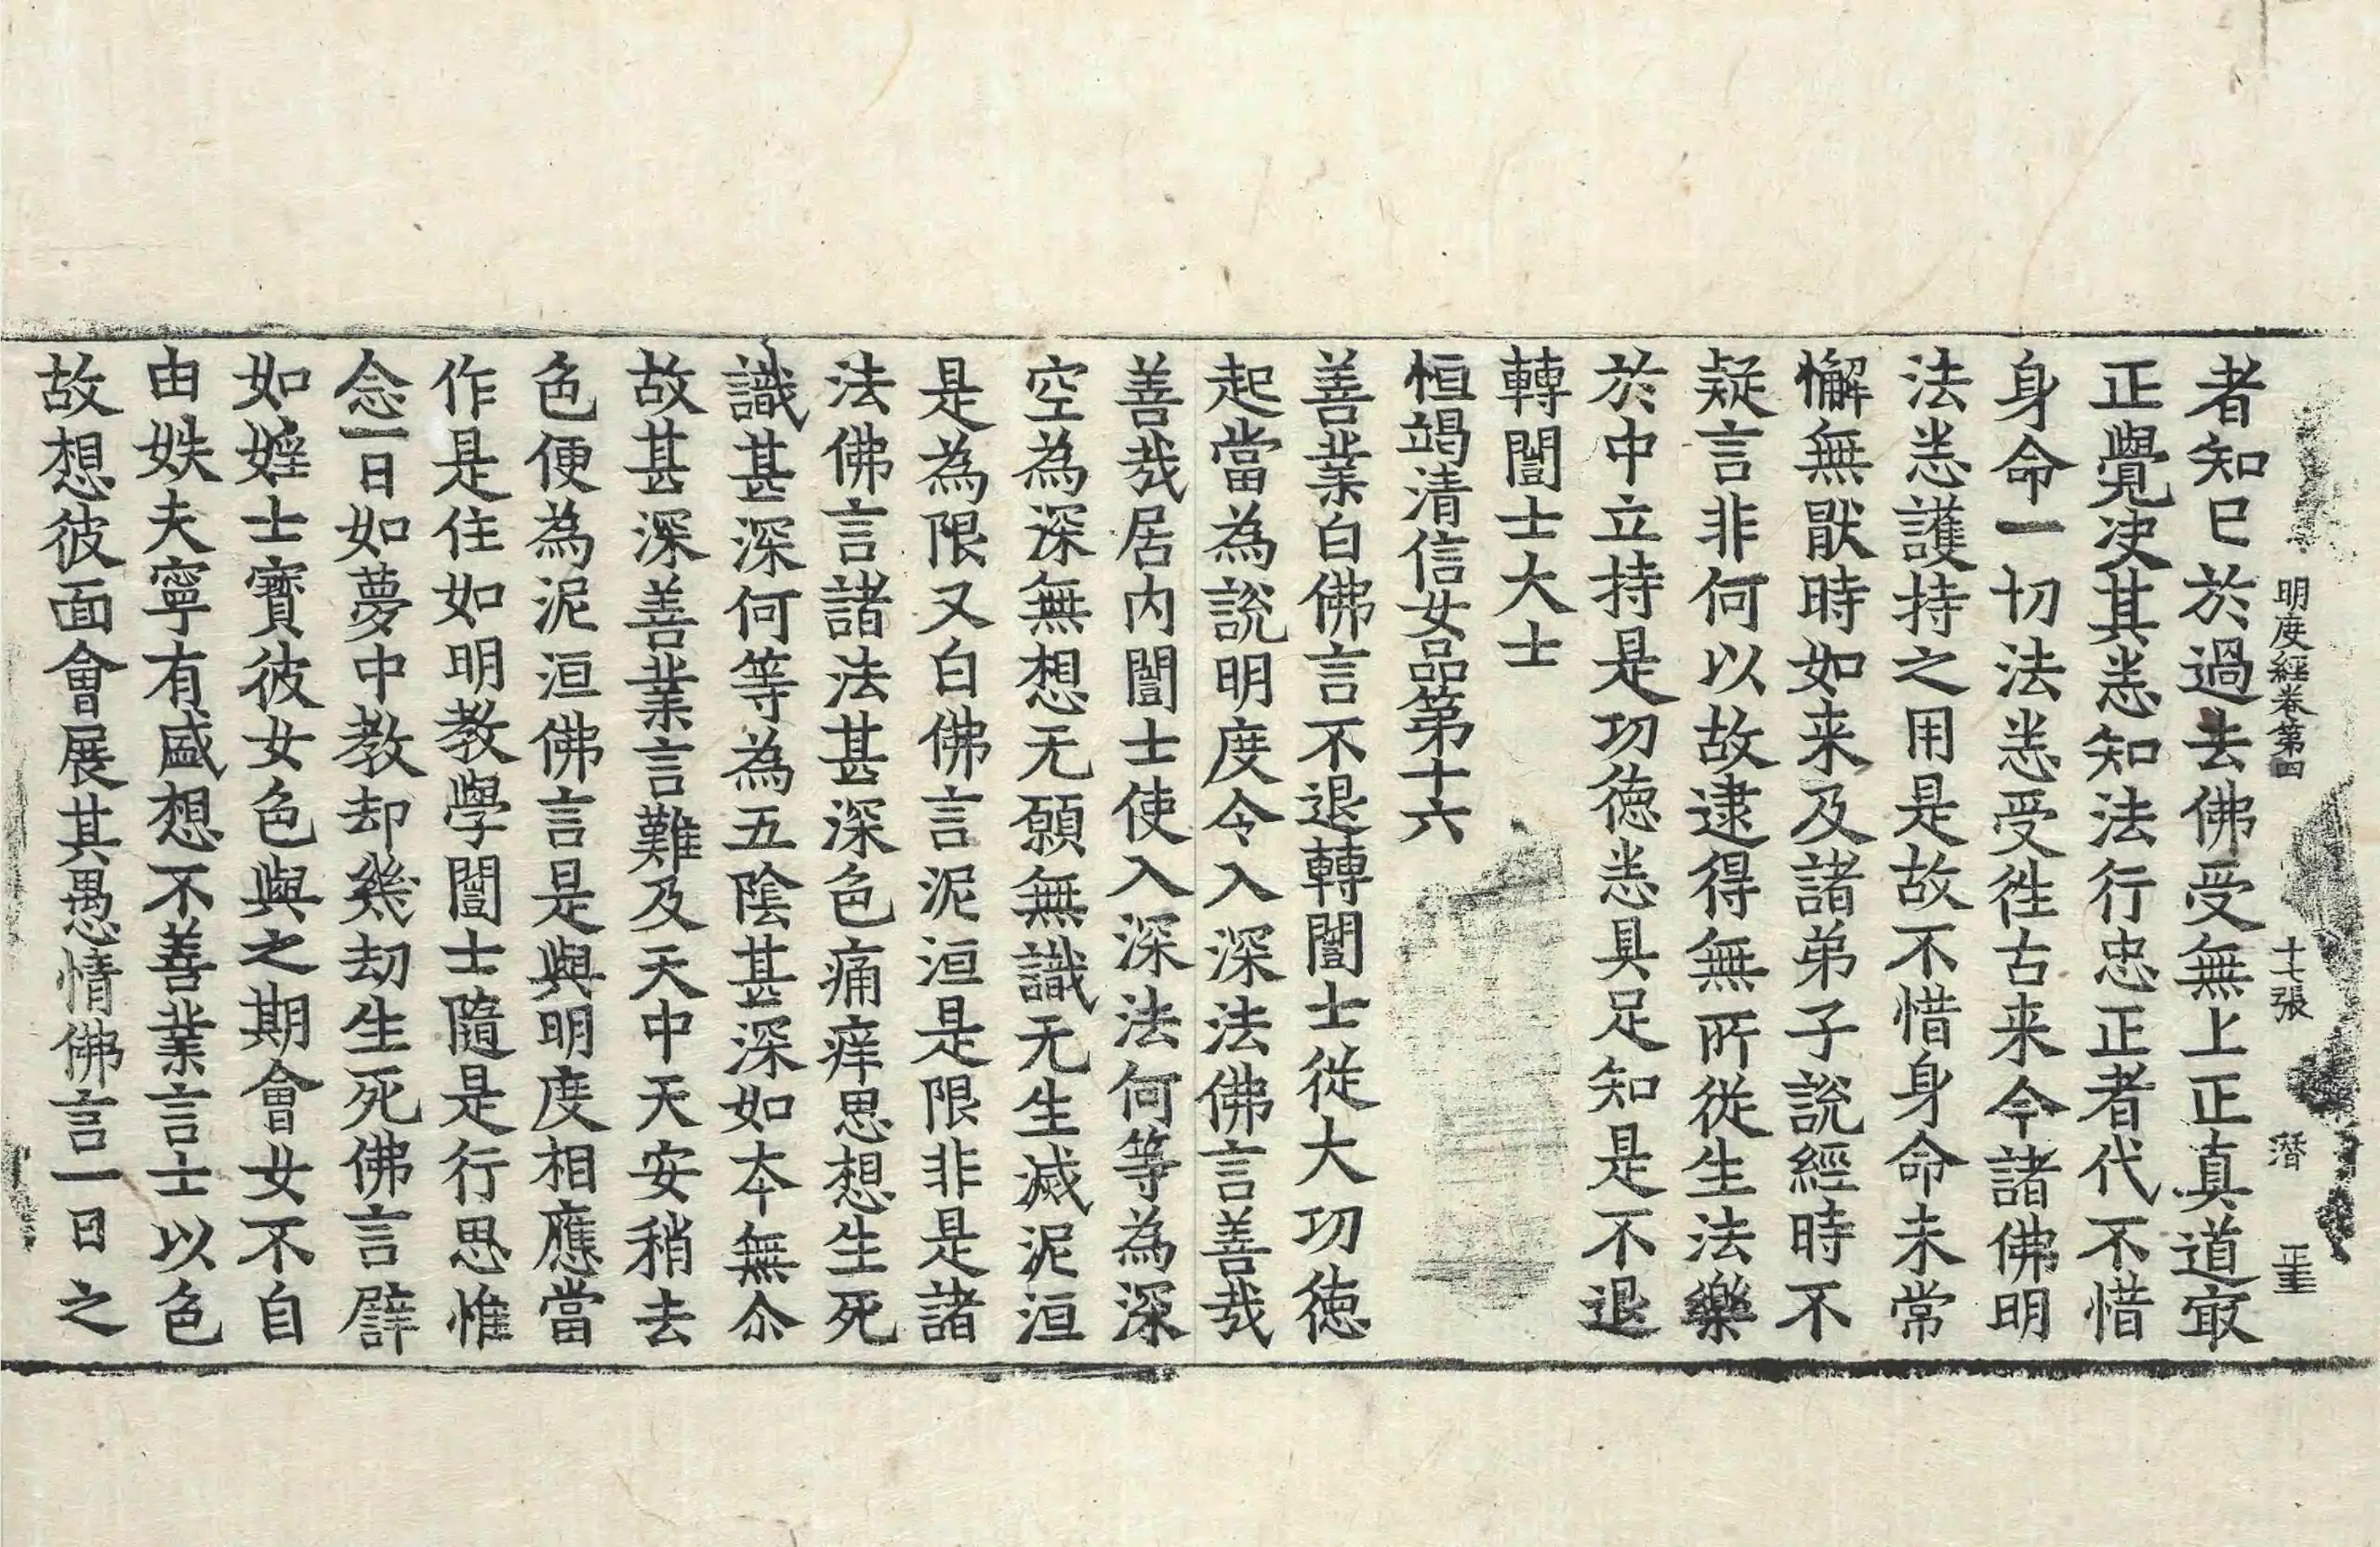 明度經卷第四　十七張　潛　𤴓
者知已於過去佛受無上正真道㝡
正覺决其恙知法行忠正者代不惜
身命一切法恙受徃古来今諸佛明
法恙護持之用是故不惜身命未常
懈無猒時如来及諸弟子說經時不
疑言非何以故逮得無所從生法樂
於中立持是功徳恙具足知是不退
轉闓士大士
恒竭清信女品第十六
善業白佛言不退轉闓士從大功徳
起當為說明度令入深法佛言善㢤
善㢤居内闓士使入深法何等為深
空為深無想无願無識无生滅泥洹
是為限又白佛言泥洹是限非是諸
法佛言諸法甚深色痛痒思想生死
識甚深何等為五陰甚深如夲無尒
故甚深善業言難及天中天安稍去
色便為泥洹佛言是與明度相應當
作是住如明教學闓士隨是行思惟
念一日如夢中教却幾劫生死佛言譬
如婬士寶彼女色與之期會女不自
由姝夫寧有盛想不善業言士以色
故想彼面會展其愚情佛言一日之